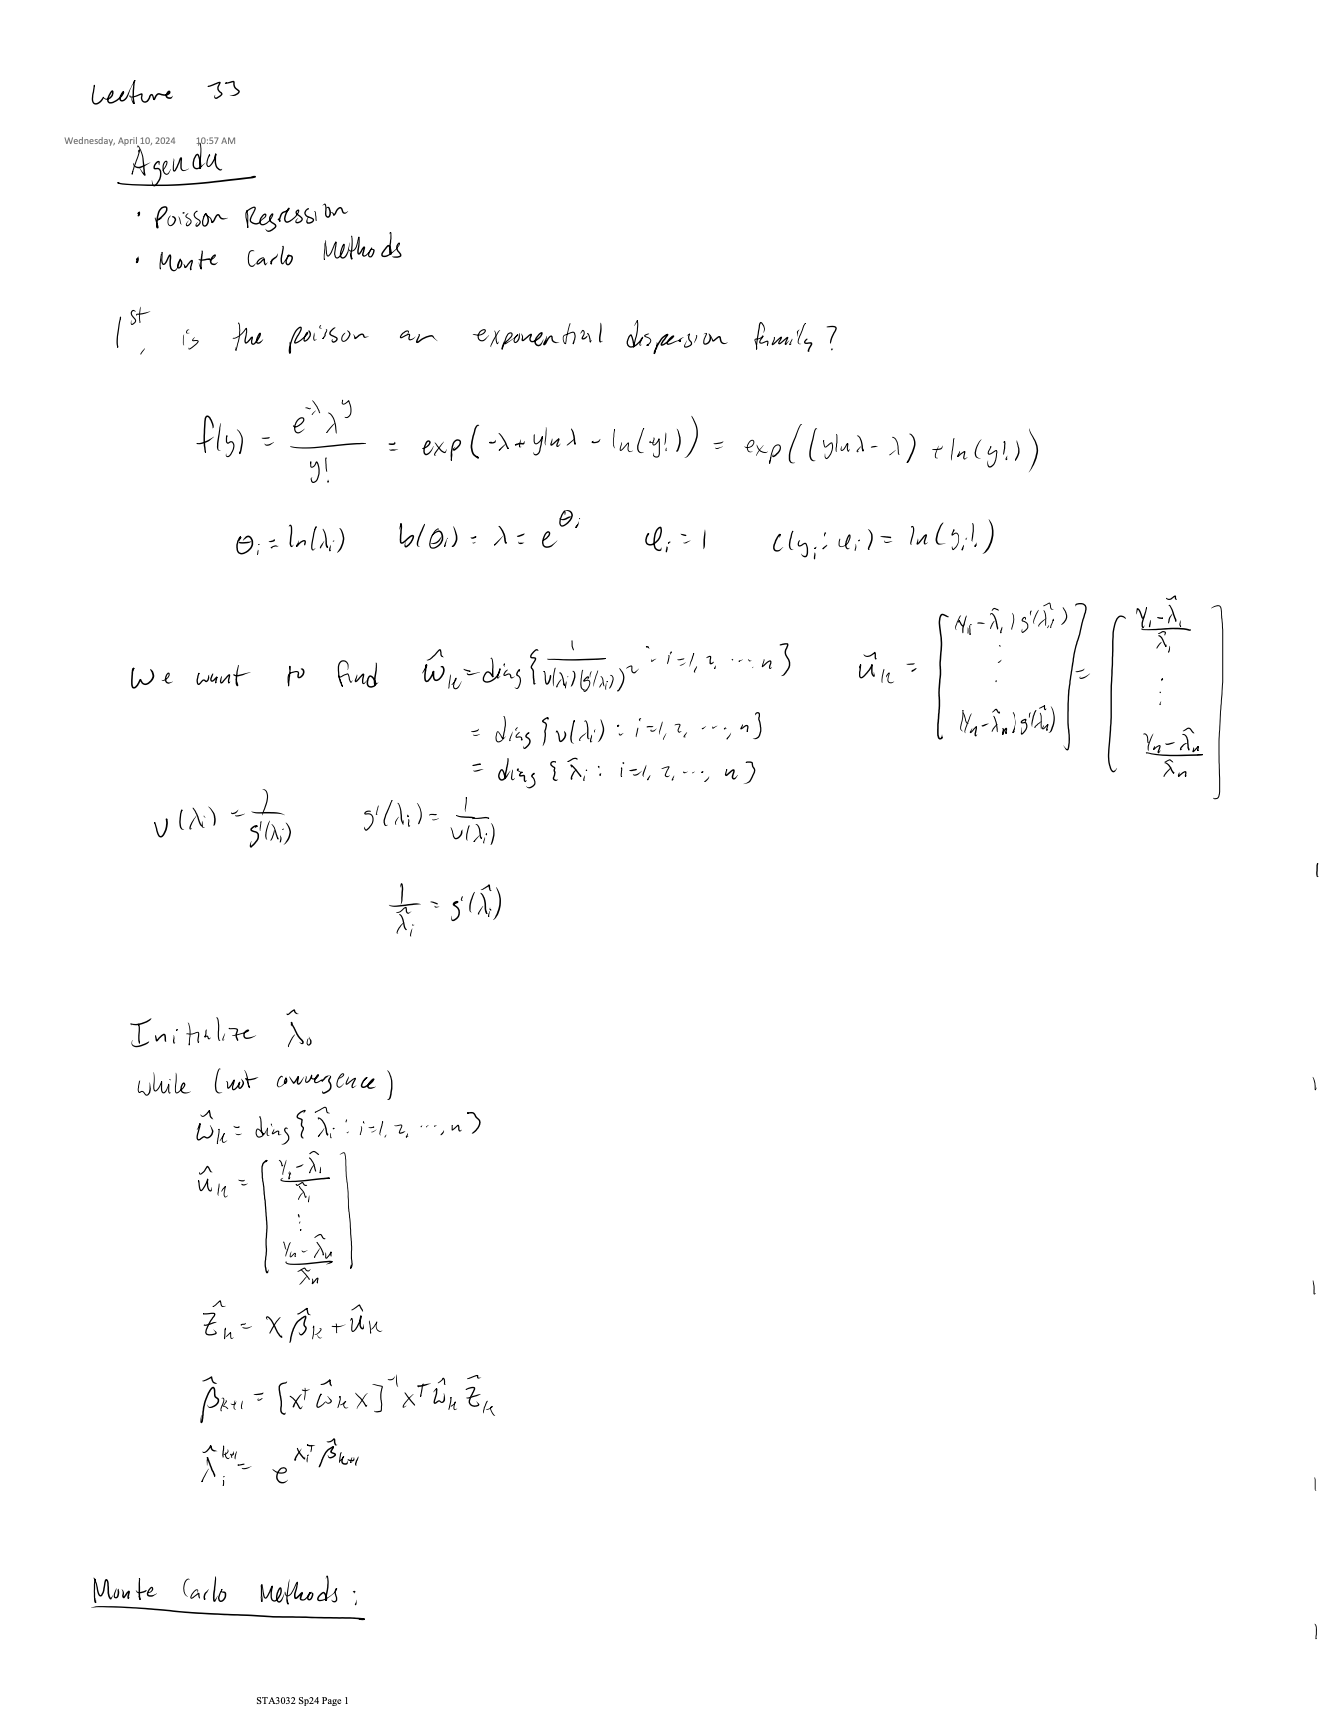 Lecture 33
Wednesday, April 10, 2024 10:57 AM
Agenda
· Poisson Regression
· Monte Carlo Methods
1st, is the poisson an exponential dispersion family?
f(y) = e^{-λ} λ^y / y! = exp(-λ + y ln λ - ln(y!)) = exp((y ln λ - λ) + ln(y!))
θ_i = ln(λ_i) b(θ_i) = λ = e^{θ_i} φ_i = 1 c(y_i; φ_i) = ln(y_i!)
We want to find ŵ_k = diag{ 1 / v(λ̂_i)(g'(λ̂_i))^2 : i=1, 2, ..., n} û_k = [ (Y_1 - λ̂_1) g'(λ̂_1) ⋮ (Y_n - λ̂_n) g'(λ̂_n) ] = [ (Y_1 - λ̂_1) / λ̂_1 ⋮ (Y_n - λ̂_n) / λ̂_n ]
= diag{ v(λ̂_i) : i=1, 2, ..., n}
= diag{ λ̂_i : i=1, 2, ..., n}
v(λ_i) = 1 / g'(λ_i) g'(λ_i) = 1 / v(λ_i)
1 / λ̂_i = g'(λ̂_i)
Initialize λ̂_0
while (not convergence)
ŵ_k = diag{ λ̂_i : i=1, 2, ..., n}
û_k = [ (Y_1 - λ̂_1) / λ̂_1 ⋮ (Y_n - λ̂_n) / λ̂_n ]
ẑ_k = X β̂_k + û_k
β̂_{k+1} = [X^T ŵ_k X]^{-1} X^T ŵ_k ẑ_k
λ̂_i^{k+1} = e^{x_i^T β̂_{k+1}}
Monte Carlo Methods:
STA3032 Sp24 Page 1